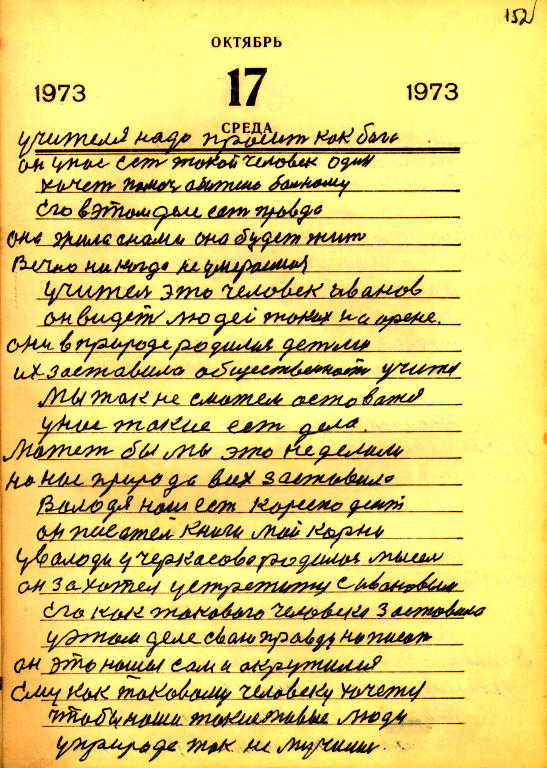 152
ОКТЯБРЬ
1973 17 1973
СРЕДА
учителя надо просит как бога
он унас ест такой человек один
хочет помоч обижено болному
Его вэтом деле ест правда
она жила снами она будет жит
Вечно никогда не умераися
учител это человек иванов
он видет людей таких на арене.
они вприроде родилис детми
их заставила общественност учитя
Мы так не сможем остоватя
унас такие ест дела.
Может бы мы это неделили
но нас природа вих заставила
Валодя наш ест кореспо дент
он писател книги мои корни
увалоди учеркасова родилас мысел
он захотел устретится сивановым
Его как такового человека заставила
уэтом деле сваю правду написат
он это нашы сами окрутилися
Ему как таковому человеку хочетя
чтобы наши такие живые люди
уприроде так не мучились.